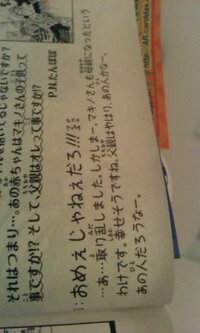 それはつまり…。あの赤ちゃんはマキノさんの子供って
事ですか!? そして、父親はオレって事ですか!?
P.N.たんぽぽ
おめェじゃねェだろ!!!
…あ…取り乱しました。しかしまー、マキノさんも母親になったという
わけです。幸せそうですね。父親はやはり、あの人かなー。
あの人だろうなー。
http://AR.carddas